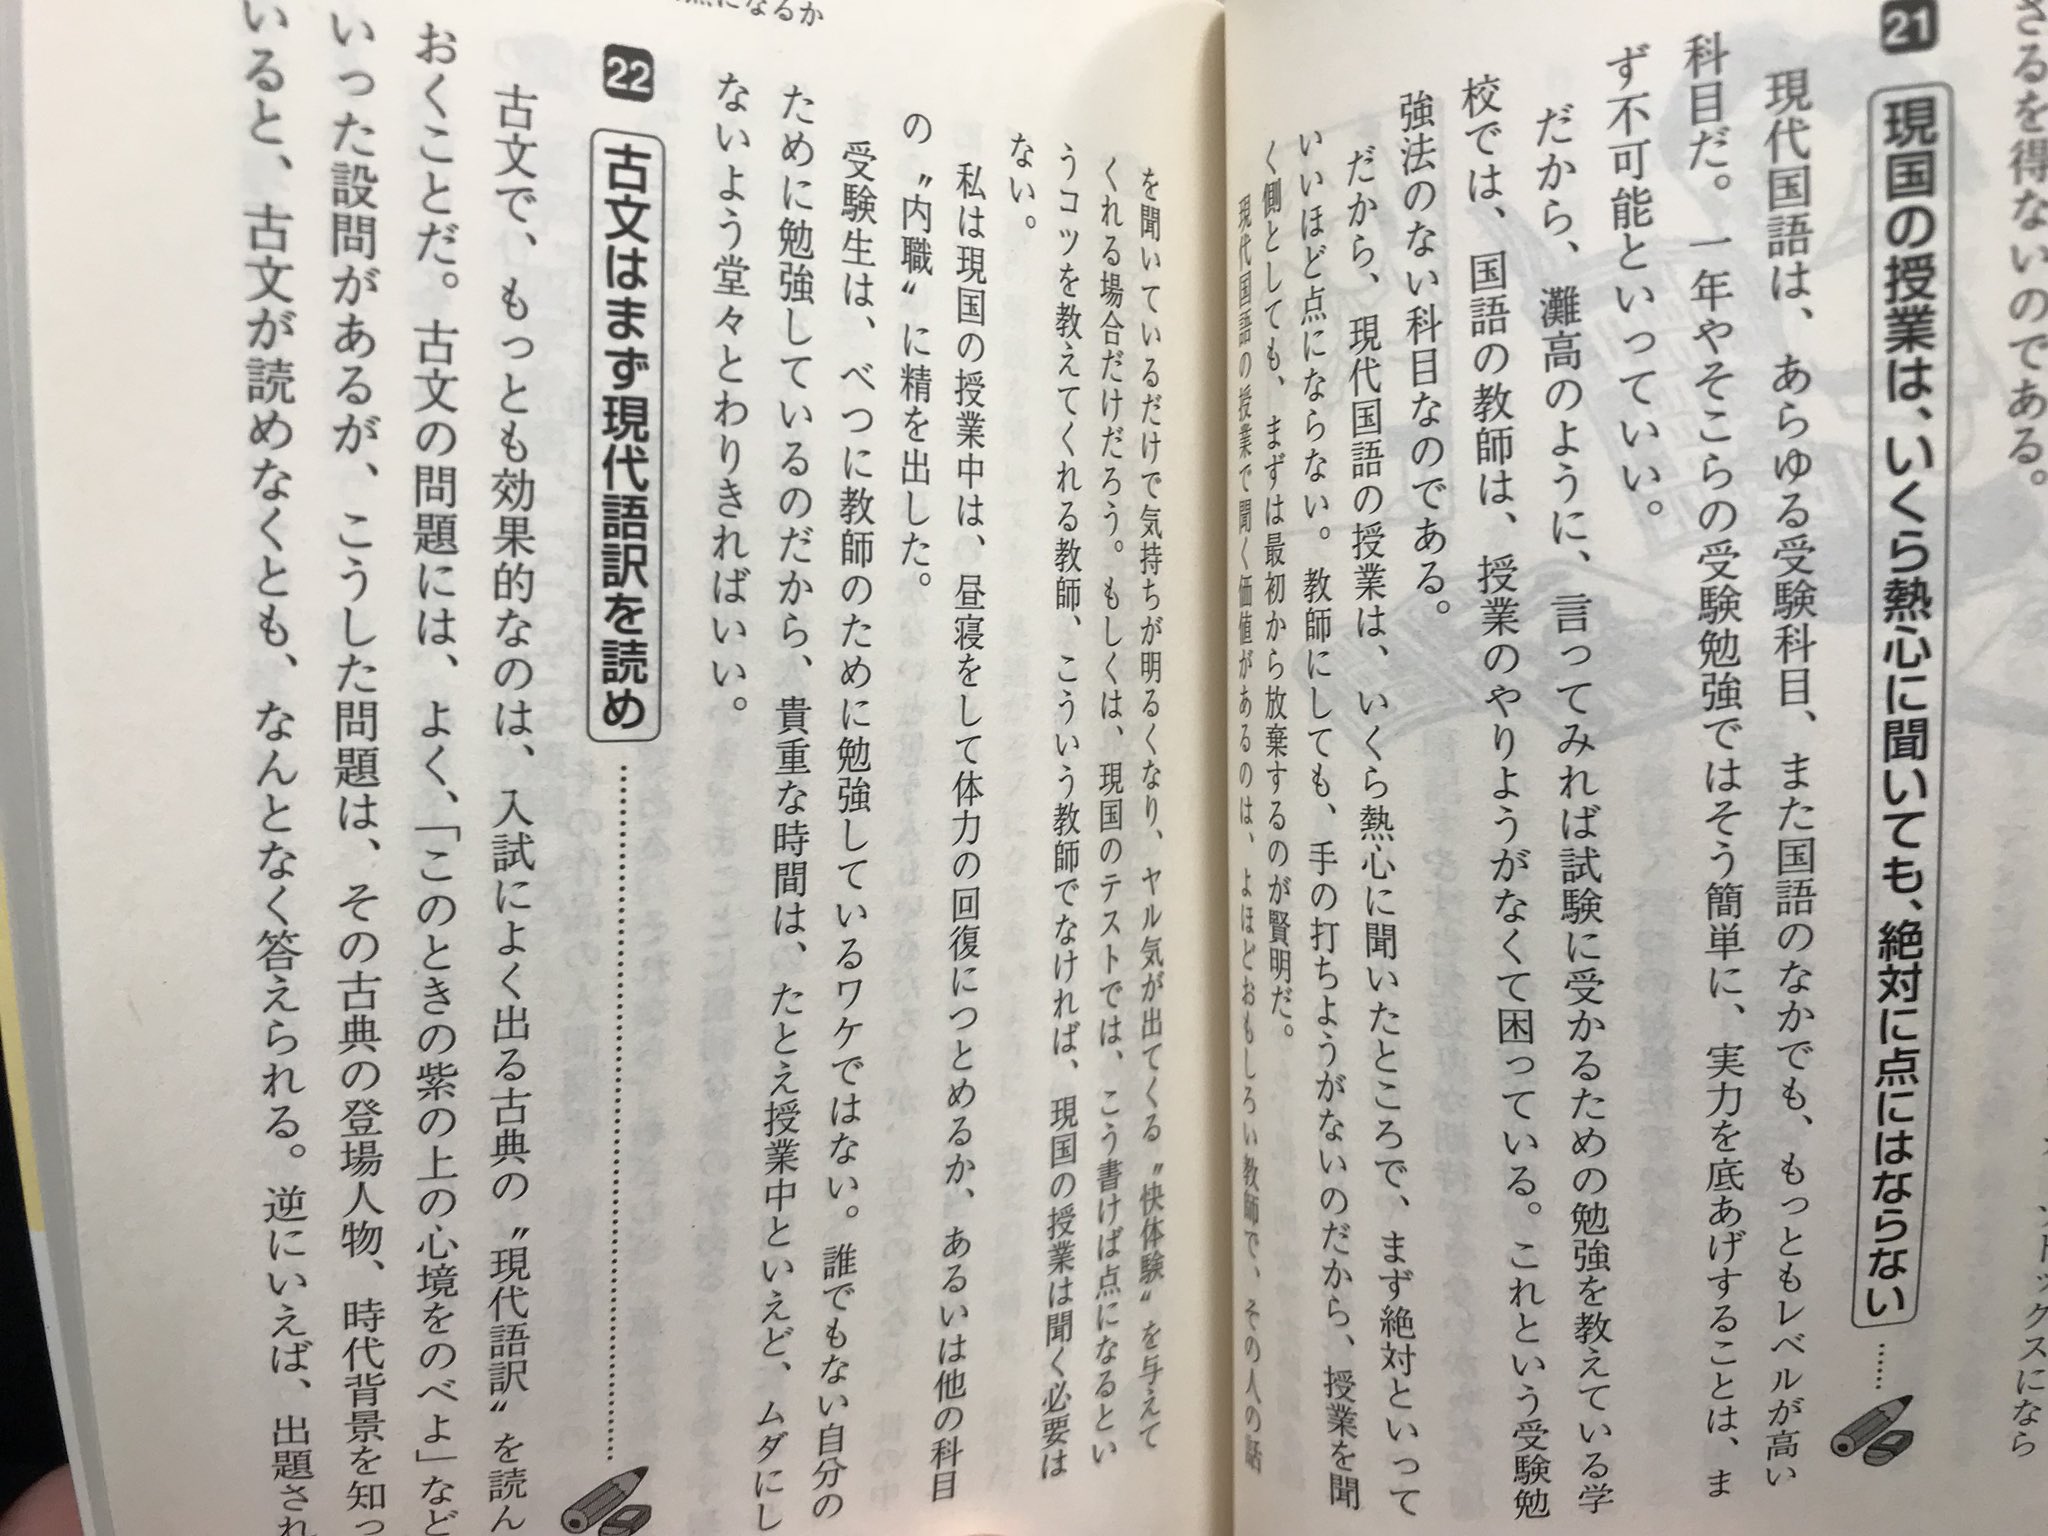 さるを得ないのである。
ックスになら
21 現国の授業は、いくら熱心に聞いても、絶対に点にはならない……
現代国語は、あらゆる受験科目、また国語のなかでも、もっともレベルが高い
科目だ。一年やそこらの受験勉強ではそう簡単に、実力を底あげすることは、ま
ず不可能といっていい。
だから、灘高のように、言ってみれば試験に受かるための勉強を教えている学
校では、国語の教師は、授業のやりようがなくて困っている。これという受験勉
強法のない科目なのである。
だから、現代国語の授業は、いくら熱心に聞いたところで、まず絶対といって
いいほど点にならない。教師にしても、手の打ちようがないのだから、授業を聞
く側としても、まずは最初から放棄するのが賢明だ。
現代国語の授業で聞く価値があるのは、よほどおもしろい教師で、その人の話
を聞いているだけで気持ちが明るくなり、ヤル気が出てくる〝快体験〟を与えて
くれる場合だけだろう。もしくは、現国のテストでは、こう書けば点になるとい
うコツを教えてくれる教師、こういう教師でなければ、現国の授業は聞く必要は
ない。
私は現国の授業中は、昼寝をして体力の回復につとめるか、あるいは他の科目
の〝内職〟に精を出した。
受験生は、べつに教師のために勉強しているワケではない。誰でもない自分の
ために勉強しているのだから、貴重な時間は、たとえ授業中といえど、ムダにし
ないよう堂々とわりきればいい。
になるか
22 古文はまず現代語訳を読め
古文で、もっとも効果的なのは、入試によく出る古典の〝現代語訳〟を読ん
おくことだ。古文の問題には、よく、「このときの紫の上の心境をのべよ」など
いった設問があるが、こうした問題は、その古典の登場人物、時代背景を知っ
いると、古文が読めなくとも、なんとなく答えられる。逆にいえば、出題され